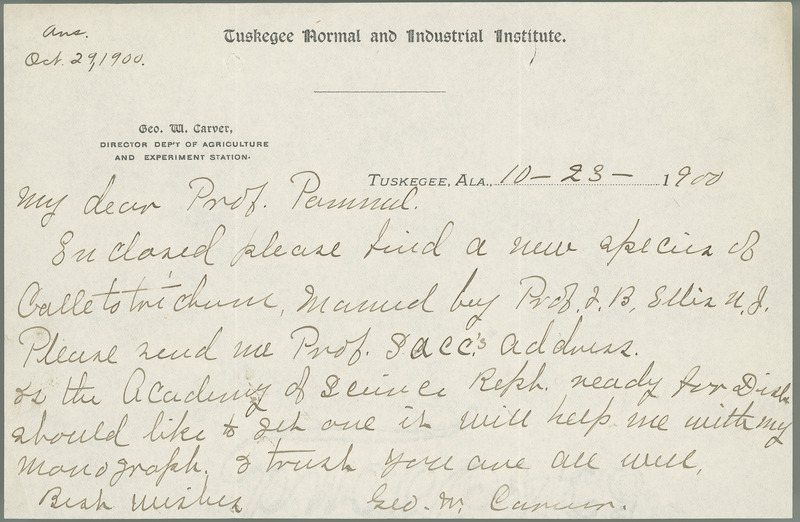 Ans.
Oct. 29, 1900.
Tuskegee Normal and Industrial Institute.
Geo. W. Carver,
DIRECTOR DEP'T OF AGRICULTURE
AND EXPERIMENT STATION.
TUSKEGEE, ALA., 10 – 23 – 1900
My dear Prof. Pammel.
Enclosed please find a new species of
Colletotrichum, named by Prof. J. B. Ellis N. J.
Please send me Prof. Sacc.'s address.
Is the Academy of Science Rept. ready for Dist.
should like to get one it will help me with my
monograph. I trust you are all well,
Best wishes
Geo. W. Carver.